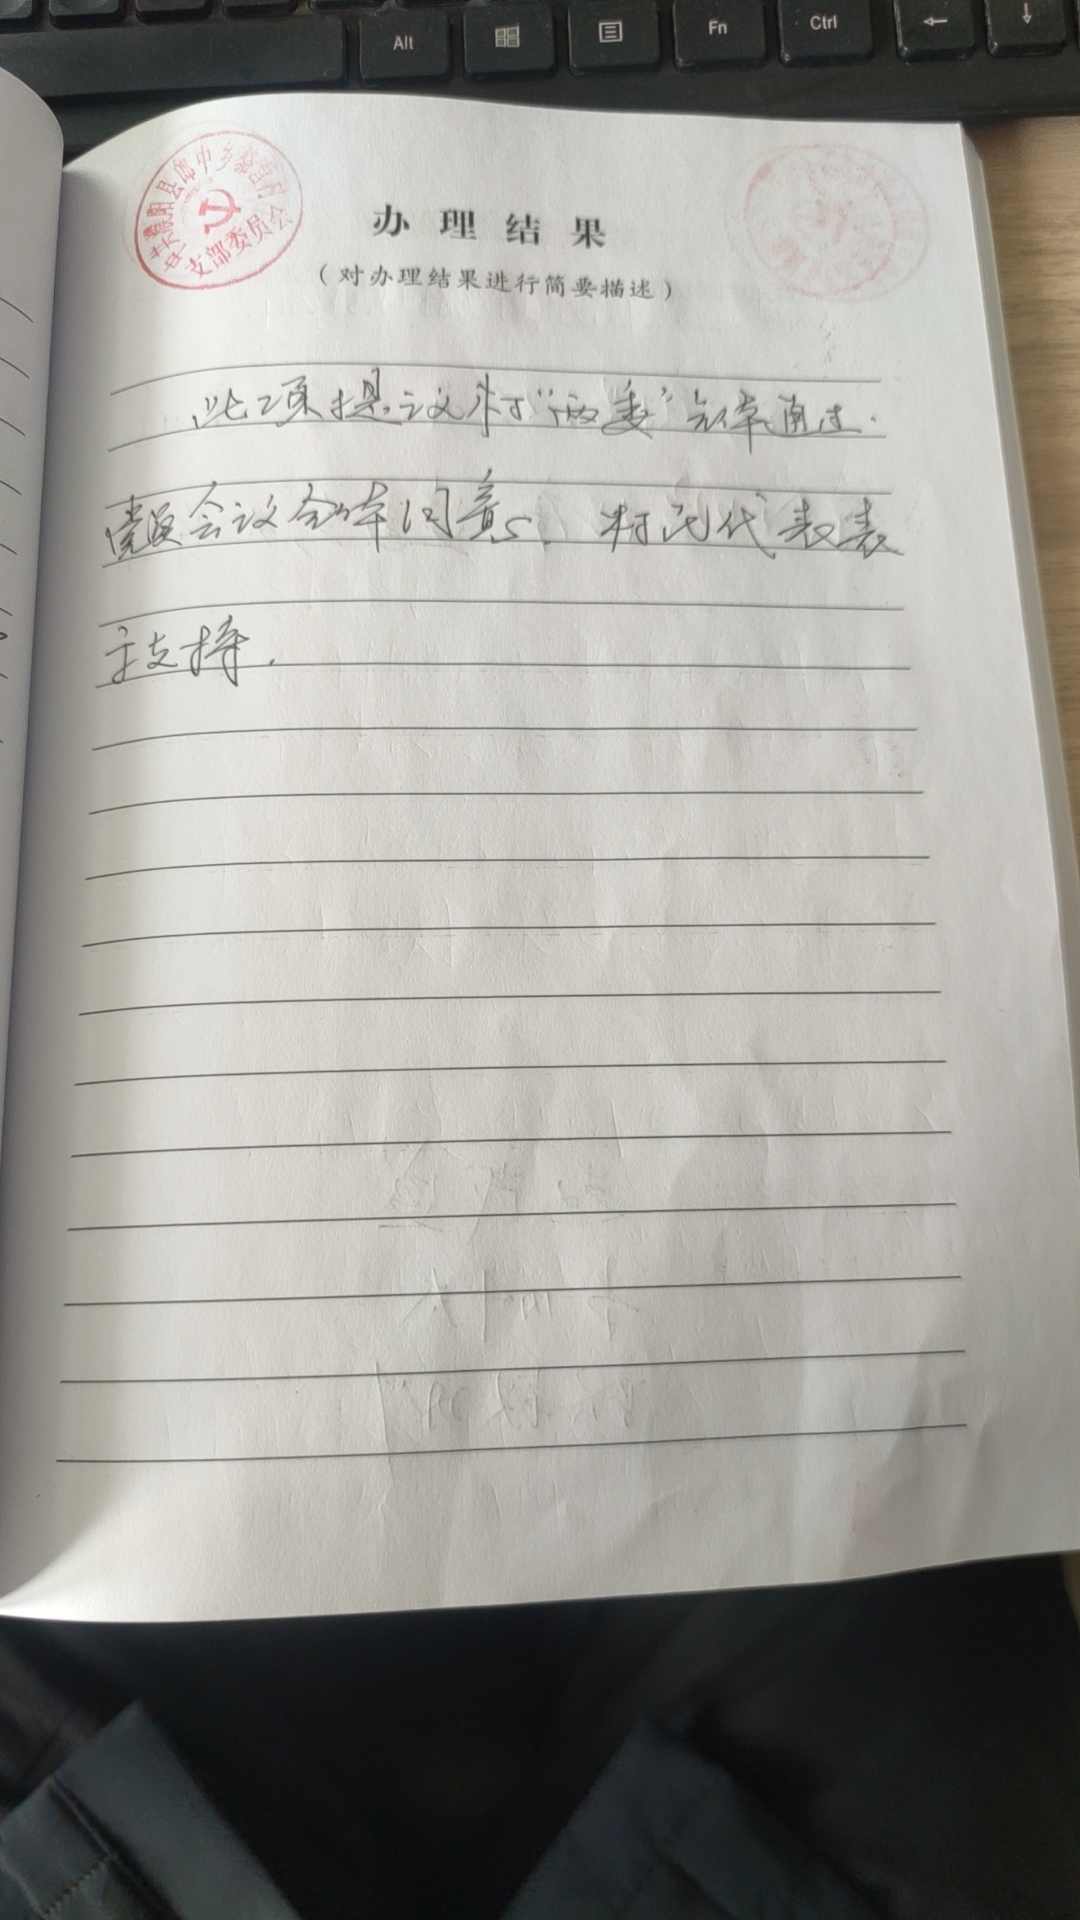 Alt
Fn
Ctrl
←
↓
中共濮阳县郎中乡
支部委员会
办理结果
（对办理结果进行简要描述）
此项提议村“两委”全体通过.
党员会议全体同意. 村民代表表
示支持.